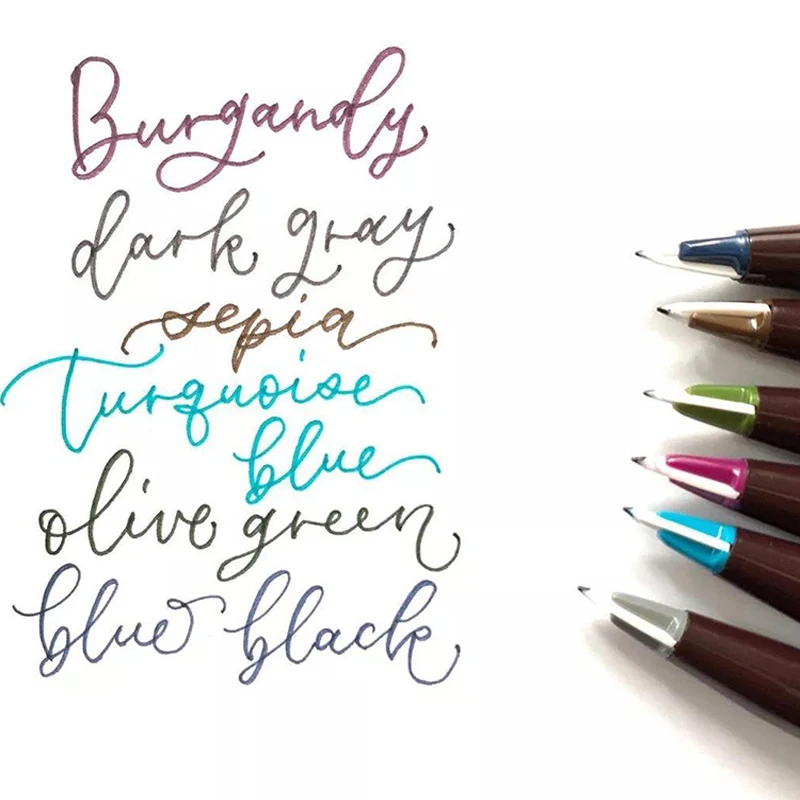 Burgandy
dark gray
sepia
Turquoise
blue
olive green
blue black